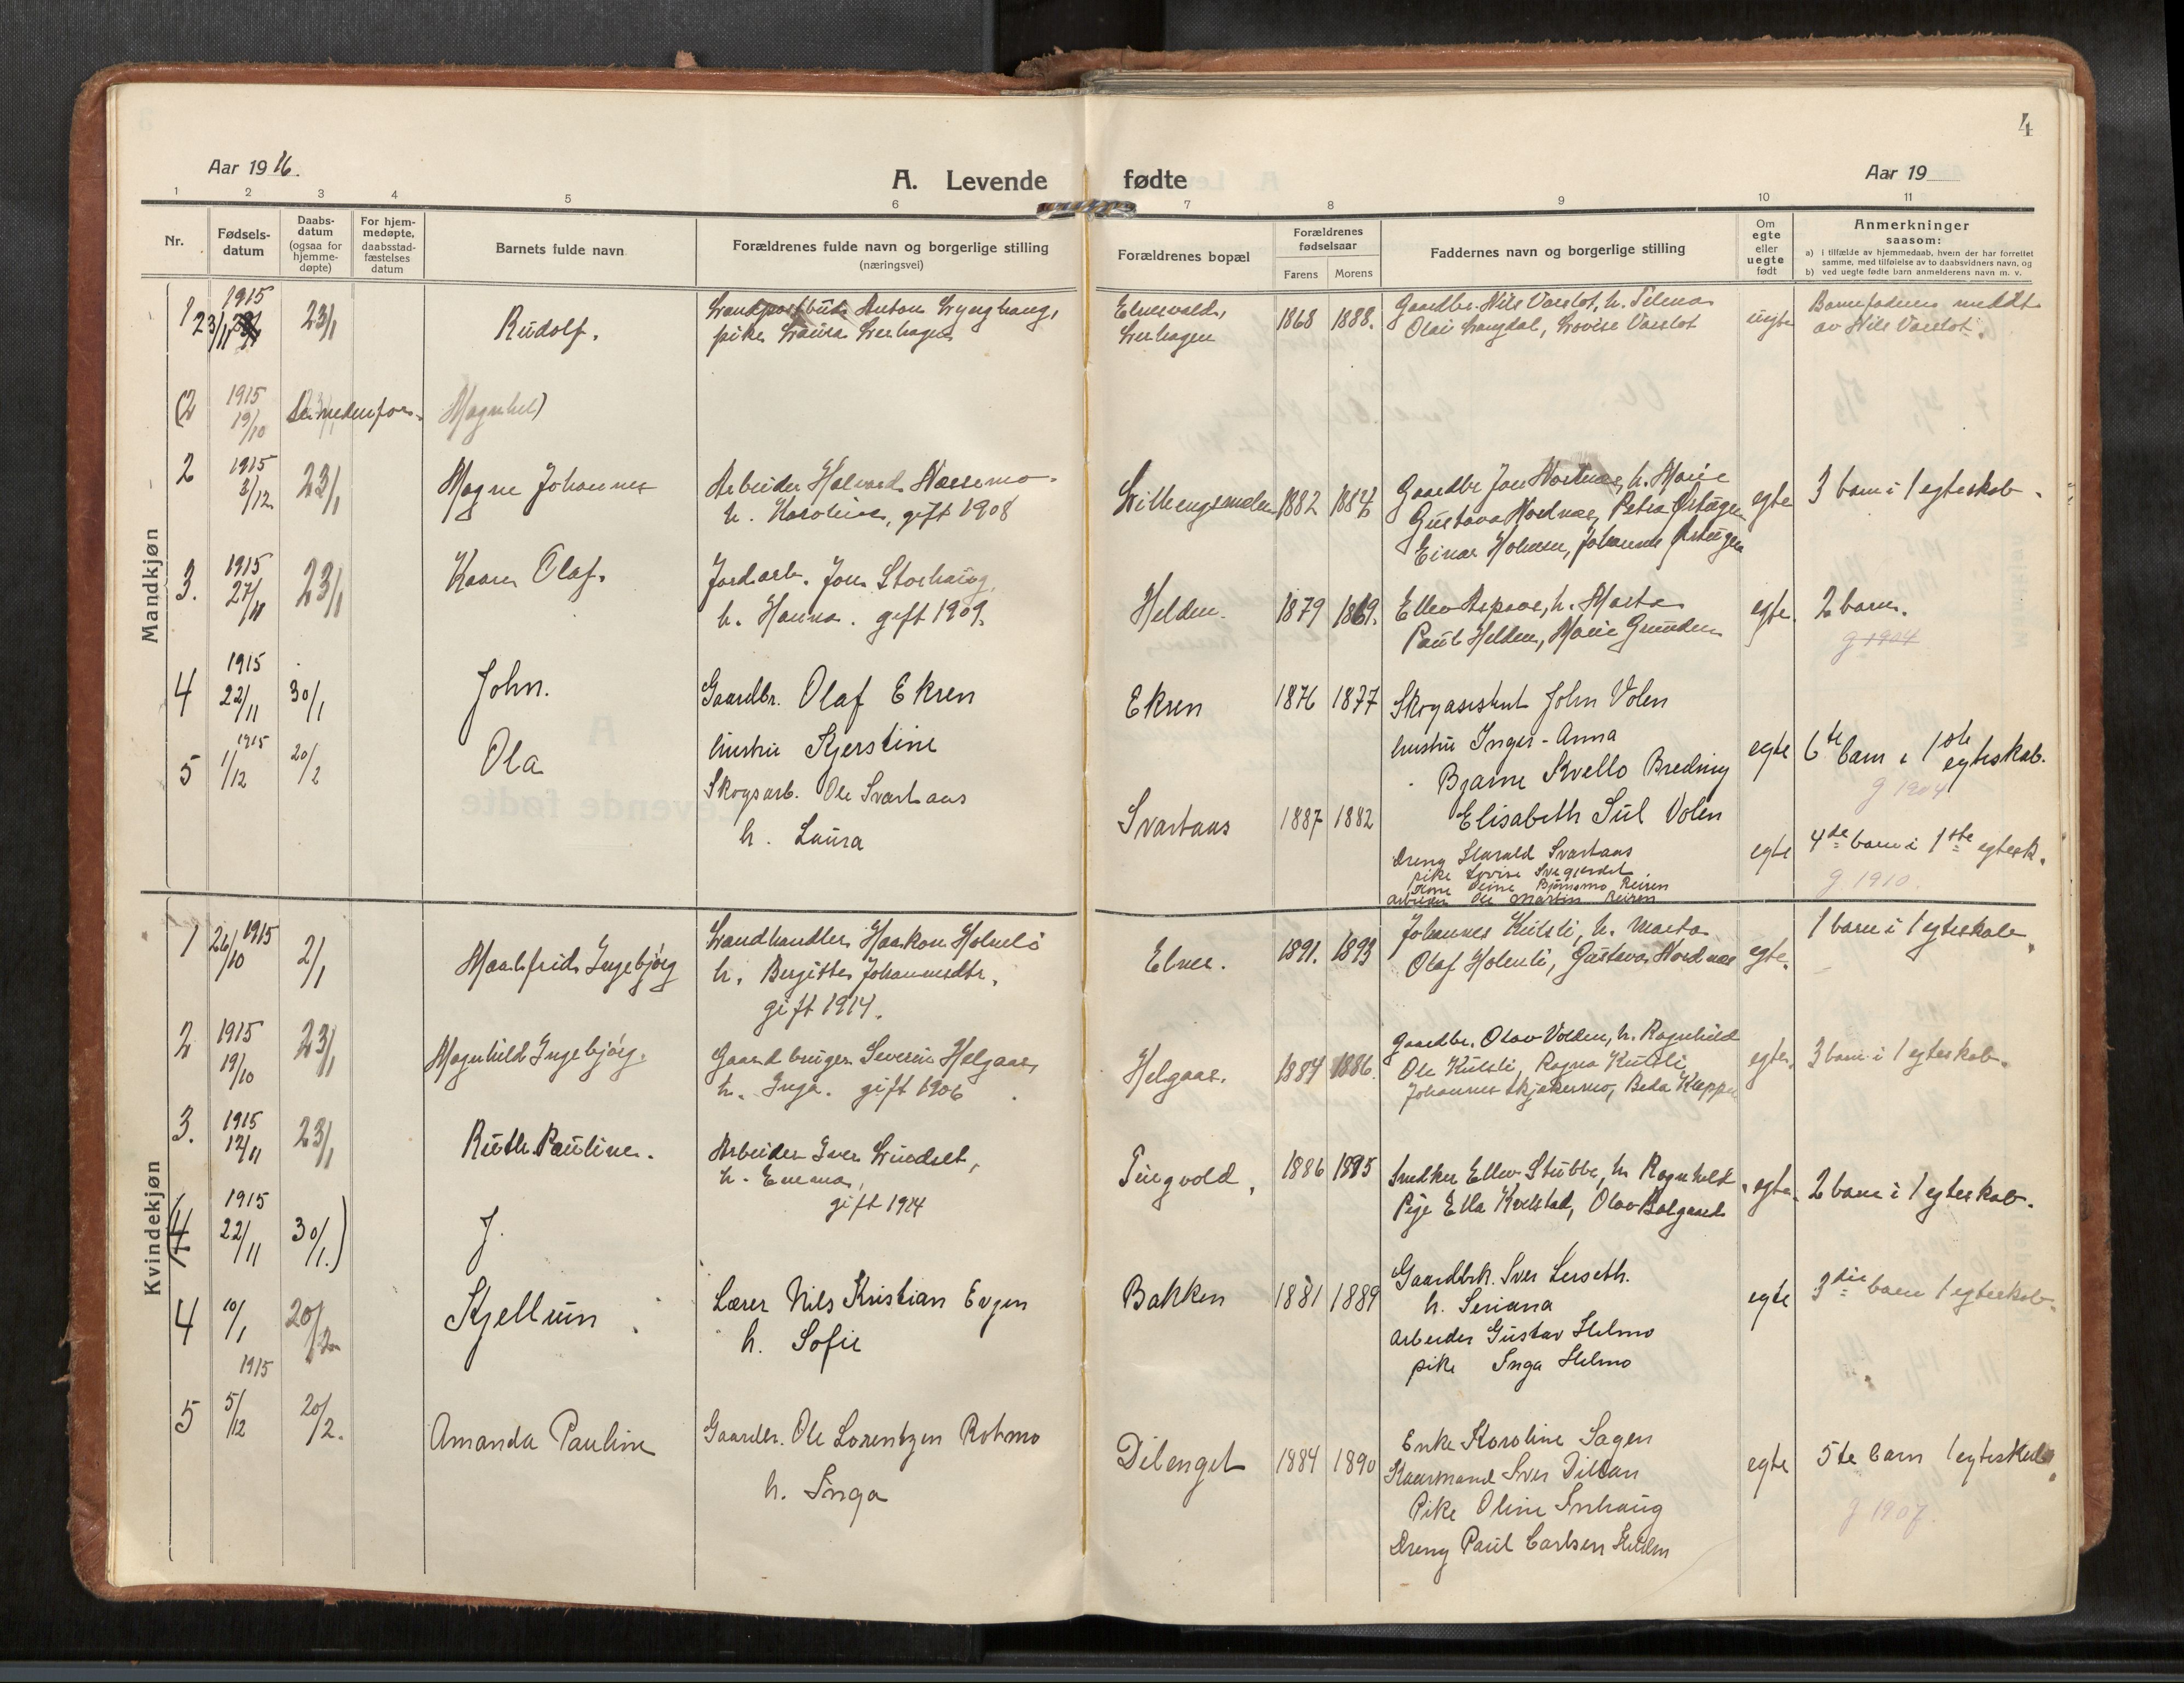 4
Aar 1916.
A. Levende fødte
Aar 19
1 2 3 4 5 6 7 8 9 10 11
Nr.
Fødsels-
datum
Daabs-
datum
(ogsaa for
hjemme-
døpte)
For hjem-
medøpte,
daabsstad-
fæstelses
datum
Barnets fulde navn
Forældrenes fulde navn og borgerlige stilling
(næringsvei)
Forældrenes bopæl
Forældrenes
fødselsaar
Farens Morens
Faddernes navn og borgerlige stilling
Om
egte
eller
uegte
født
Anmerkninger
saasom:
a) i tilfælde av hjemmedaab, hvem der har forrettet
samme, med tilføielse av to daabsvidners navn, og
b) ved uegte fødte barn anmelderens navn m. v.
Mandkjøn
1 1915 23/11 23/1 Rudolf. Anton
pike Laura
1868 1888. Gaardbr. Nils Varslot, h.
Olai Langdal, Lovise Varslot
uegte Barnefaderen meddt
av Nils Varslot.
(2 1915 19/10 Se nedenfor. Magnhil)
2 1915 3/12 23/1 Magne Johannes
Arbeider Halvard
h. Karoline, gift 1908
1882 1884
Gaardbr Jon h. Marie
Gustava Nordnæs, Petra
Einar Holmen, Johannes
egte 3 barn i 1 egteskab.
3. 1915 27/11 23/1 Kaare Olaf.
Jordarb. Jon Storhaug,
h. Hanna. gift 1909.
Helden. 1879 1869.
Ellev Aspaas, h. Marta
Paul Helden, Marie Grunden
egte. 2 barn.
g 1904
4 1915 22/11 30/1 John.
Gaardbr. Olaf Eksen
hustru Kjerstine
Eksen 1876 1877
Skogassistent John Volen
hustru Inger-Anna
Bjarne Kvello Breding
Elisabeth Sul Volen
egte 6te barn i 1ste
egteskab.
g 1904
5 1915 1/12 20/2 Ola
Skogsarb. Ole Svartaas
h. Laura
Svartaas 1887 1882
Dreng Harald Svartaas
pike Lovise
Bjørnmo Reiren
arbeider Ole Martin Reiren
egte 4de barn i 1ste egtesk.
g 1910.
Kvindekjøn
1 26/10 1915 2/1 Maalfrid Ingebjørg
Landhandler Haakon Holmli
h. Bergitte Johannesdtr.
gift 1914.
Elnes. 1891. 1893
Johannes Kulsli, h. Marta
Olaf Holmli, Gustava Nordnæs
egte. 1 barn i 1 egteskab.
2 1915 19/10 23/1 Magnhild Ingebjørg.
Gaardbruger Severin Helgaas,
h. Inga. gift 1906
Helgaas. 1884 1886.
Gaardbr. Olav Volden, h. Ragnhild
Ole Kulsli, Ragna Kulsli,
Johannes Skjækermo, Beda
egte. 3 barn i 1 egteskab.
3. 1915 12/11 23/1 Ruth Pauline.
Arbeider Iver
h. Emma,
gift 1914
Tingvold, 1886 1895
Snedker Ellev Stubbe, h. Ragnhild
Pige Ella Kvelstad, Olav
egte. 2 barn i 1 egteskab.
(4 1915 22/11 30/1.) J.
4 10/1 20/2 Kjellrun
Lærer Nils Kristian Evjen
h. Sofie
Bakken 1881 1889
Gaardbrk. Iver Lerseth.
h. Seriana
Arbeider Gustav Helmo
pike Inga Helmo
egte 3die barn 1 egteskab.
5 1915 5/12 20/2. Amanda Pauline
Gaardbr. Ole Lorentzen Rotmo
h. Inga
Dilenget 1884 1890
Enke Karoline Sagen
Kaarmand Iver Dillan
Pike Oline
Dreng Paul Carlsen Helden
egte 5te barn 1 egteskab.
g 1907.